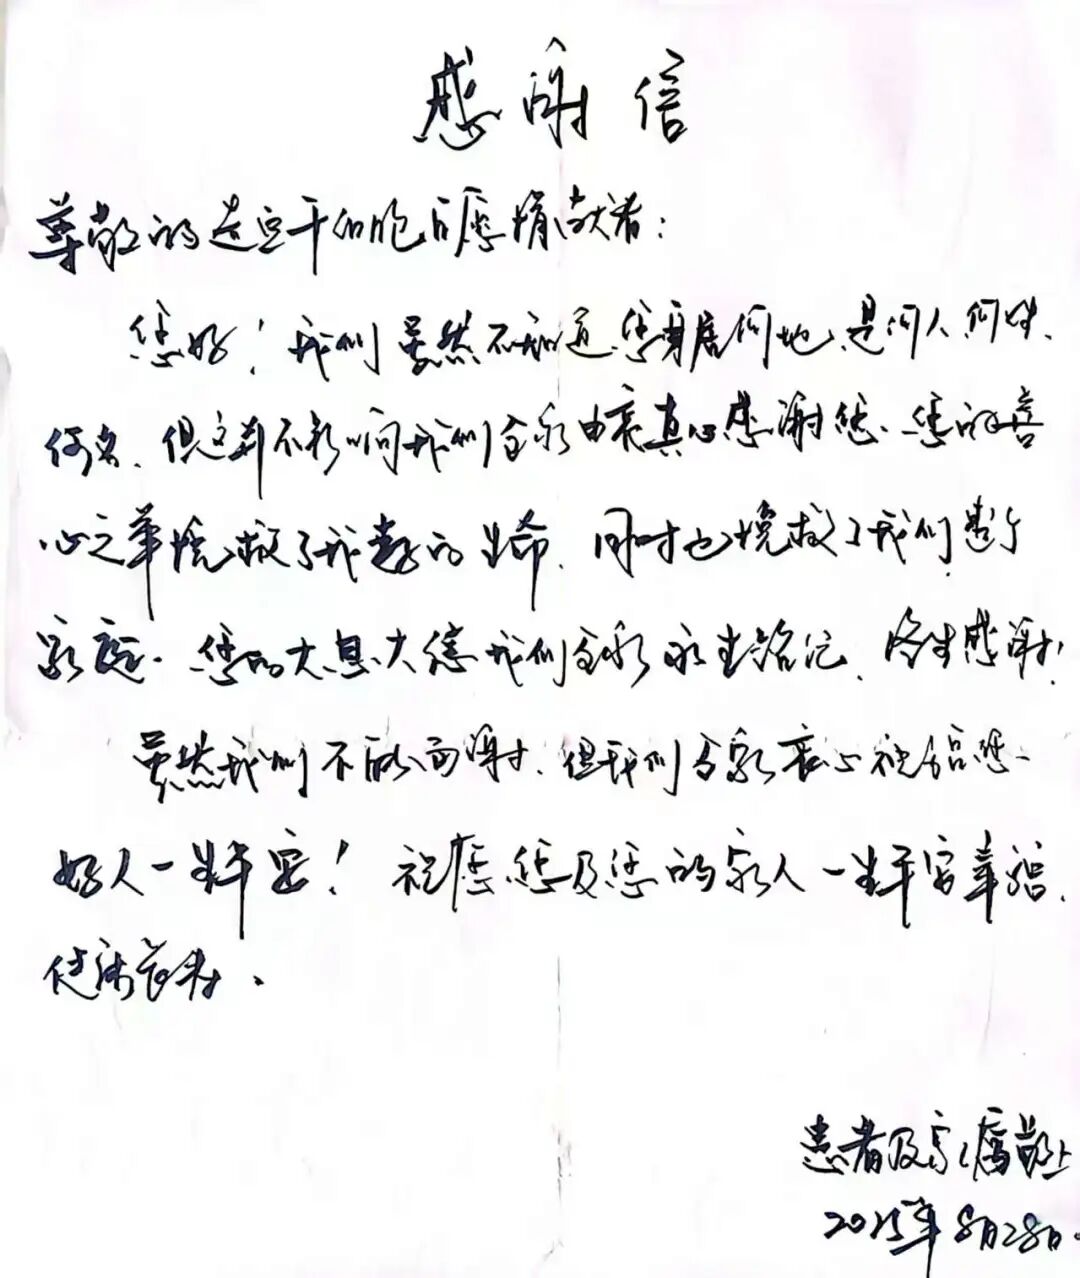 感谢信
尊敬的造血干细胞自愿捐献者：
您好！我们虽然不知道您身居何地、是何人何姓、
何名、但这并不影响我们全家由衷真心感谢您、您的善
心之举挽救了我妻的生命、同时也挽救了我们整个
家庭、您的大恩大德我们全家永生铭记、终生感谢！
虽然我们不能面谢、但我们全家衷心祝福您、
好人一生平安！祝愿您及您的家人一生平安幸福、
健康长寿。
患者及家属敬上
2025年8月28日.